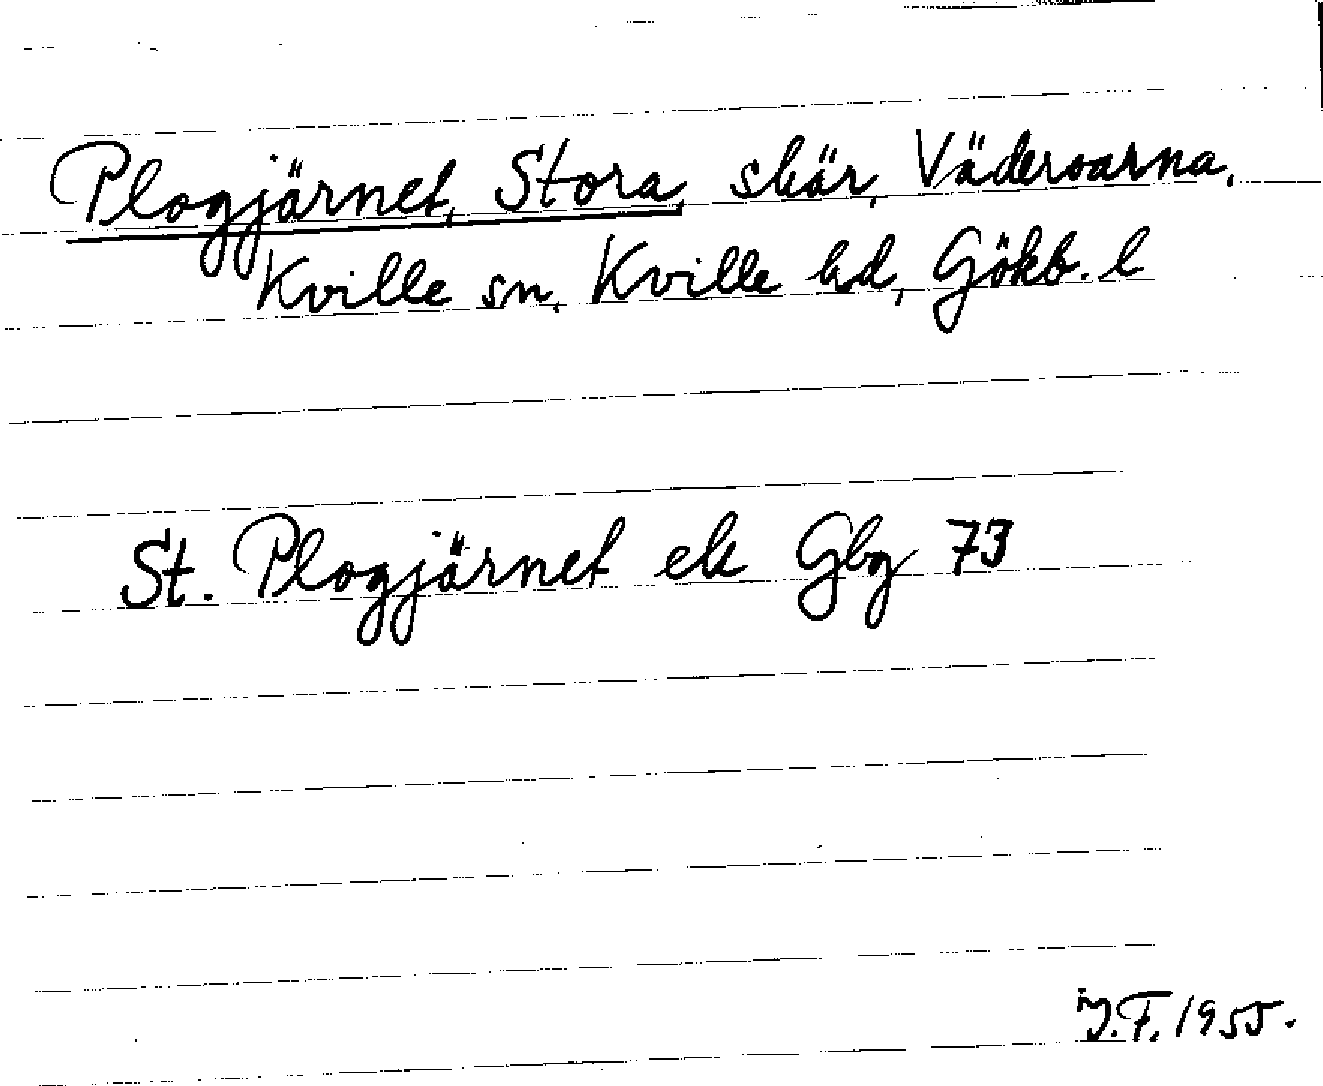 Plogjärnet, Stora, skär, Väderoarna,
Kville sn, Kville hd, Gökb. l
St. Plogjärnet ek Gbg 73
J.F. 1955.